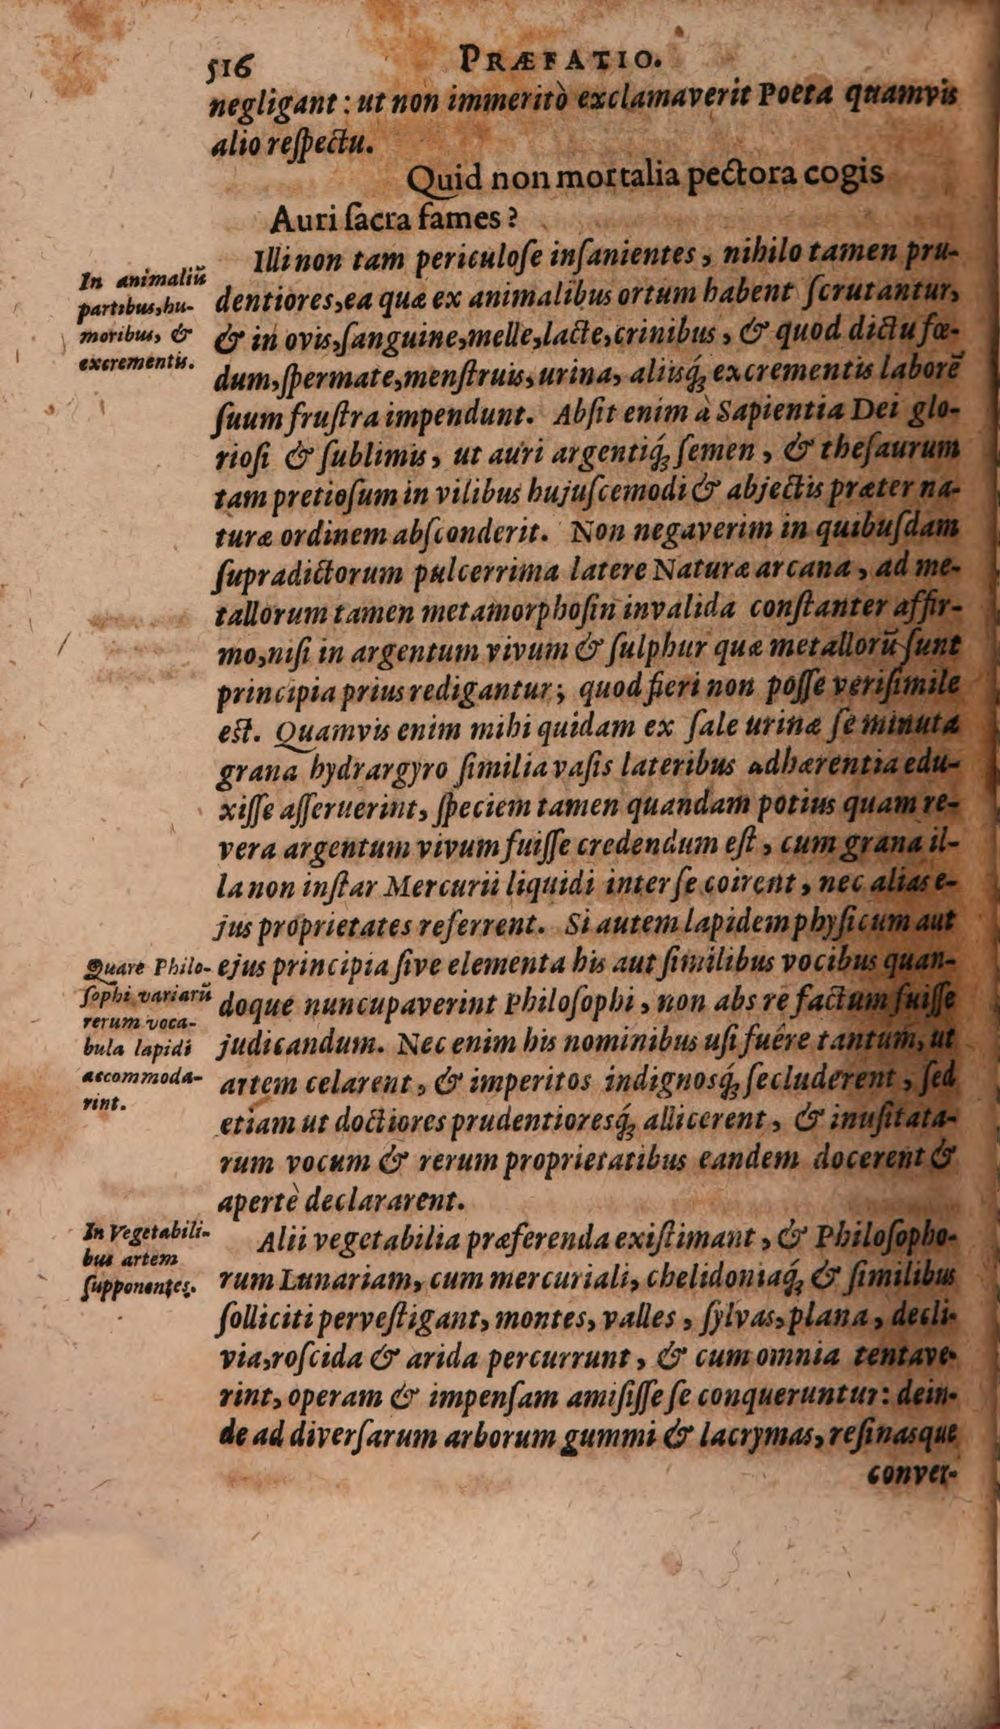 516 PRÆFATIO.
negligant : ut non immeritò exclamaverit Poeta quamvis
alio reſpectu.
Quid non mortalia pectora cogis
Auri ſacra fames ?
Illi non tam periculoſe inſanientes , nihilo tamen pru-
In animaliũ
partibus, hu-
moribus, &
excrementis.
dentiores, ea quæ ex animalibus ortum habent ſcrutantur,
& in ovis, ſanguine, melle, lacte, crinibus , & quod dictu fœ-
dum, ſpermate, menſtruis, urina, aliisq́; excrementis laborẽ
ſuum fruſtra impendunt. Abſit enim à Sapientia Dei glo-
rioſi & ſublimis , ut auri argentiq́; ſemen , & theſaurum
tam pretioſum in vilibus hujuſcemodi & abjectis præter na-
turæ ordinem abſconderit. Non negaverim in quibuſdam
ſupradictorum pulcerrima latere Naturæ arcana , ad me-
tallorum tamen metamorphoſin invalida conſtanter affir-
mo, niſi in argentum vivum & ſulphur quæ metallorũ ſunt
principia prius redigantur ; quod fieri non poſſe veriſimile
eſt. Quamvis enim mihi quidam ex ſale urinæ ſe minuta
grana hydrargyro ſimilia vaſis lateribus adhærentia edu-
xiſſe aſſeruerint, ſpeciem tamen quandam potius quam re-
vera argentum vivum fuiſſe credendum eſt , cum grana il-
la non inſtar Mercurii liquidi inter ſe coirent , nec alias e-
jus proprietates referrent. Si autem lapidem phyſicum aut
Quare Philo-
ſophi variarũ
rerum voca-
bula lapidi
accommoda-
rint.
ejus principia ſive elementa his aut ſimilibus vocibus quan-
doque nuncupaverint Philoſophi , non abs re factum fuiſſe
judicandum. Nec enim his nominibus uſi fuêre tantum, ut
artem celarent , & imperitos indignosq́; ſecluderent , ſed
etiam ut doctiores prudentioresq́; allicerent , & inuſitata-
rum vocum & rerum proprietatibus eandem docerent &
apertè declararent.
In Vegetabili-
bus artem
ſupponentes.
Alii vegetabilia præferenda exiſtimant , & Philoſopho-
rum Lunariam, cum mercuriali, chelidoniaq́; & ſimilibus
ſolliciti perveſtigant, montes, valles , ſylvas, plana , decli-
via, roſcida & arida percurrunt , & cum omnia tentave-
rint, operam & impenſam amiſiſſe ſe conqueruntur : dein-
de ad diverſarum arborum gummi & lacrymas, reſinasque
conver-